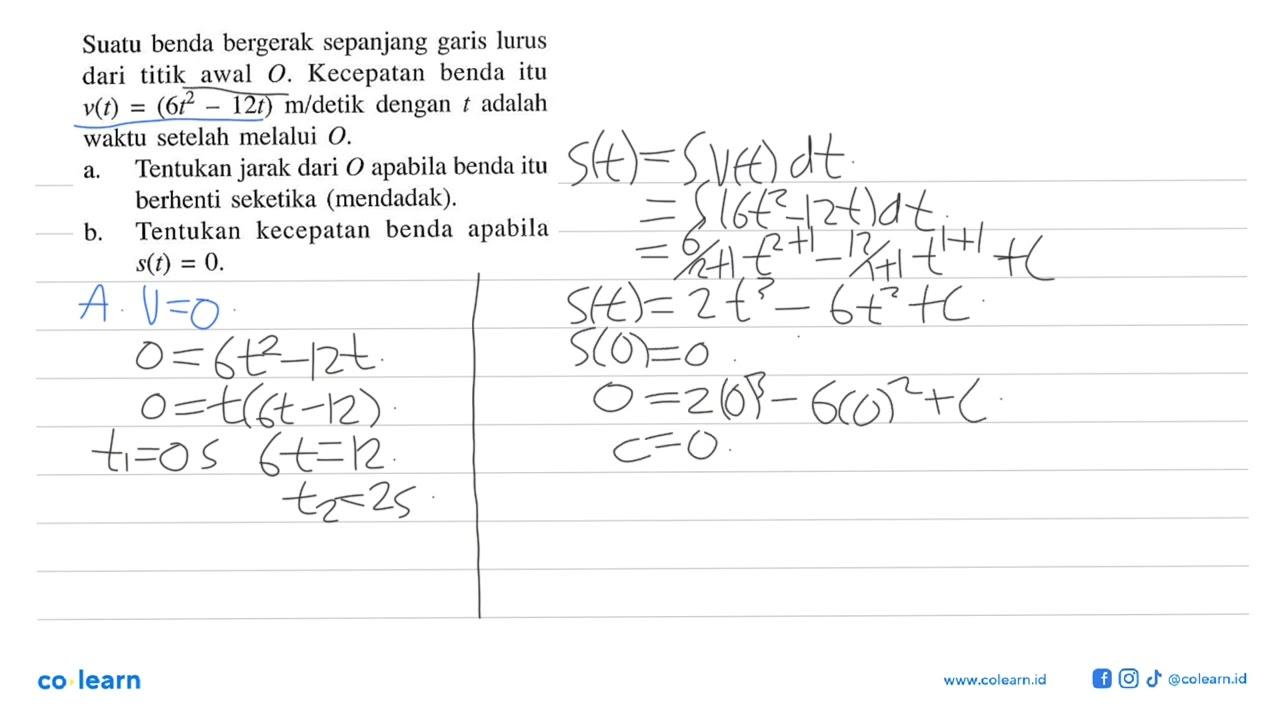 Suatu benda bergerak sepanjang garis lurus
dari titik awal O. Kecepatan benda itu
v(t) = (6t² – 12t) m/detik dengan t adalah
waktu setelah melalui O.
a. Tentukan jarak dari O apabila benda itu
berhenti seketika (mendadak).
b. Tentukan kecepatan benda apabila
s(t) = 0.
A. V=0
0=6t²-12t
0=t(6t-12)
t₁=0s 6t=12
t₂=2s
S(t)=∫V(t) dt
=∫(6t²-12t)dt
=6/2+1 t²⁺¹-12/1+1 t¹⁺¹+C
S(t)=2t³-6t²+C
S(0)=0
0=2(0)³-6(0)²+C
C=0
co learn
www.colearn.id
@colearn.id